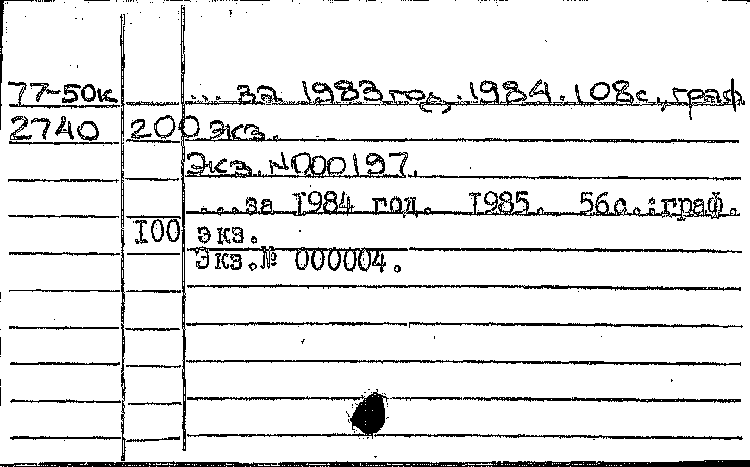 77-50к ... за 1983 год, 1984. 108с., граф
2740 200 экз.
Экз. №000197.
...за 1984 год. 1985. 56с.:граф.
100 экз.
Экз.№ 000004.